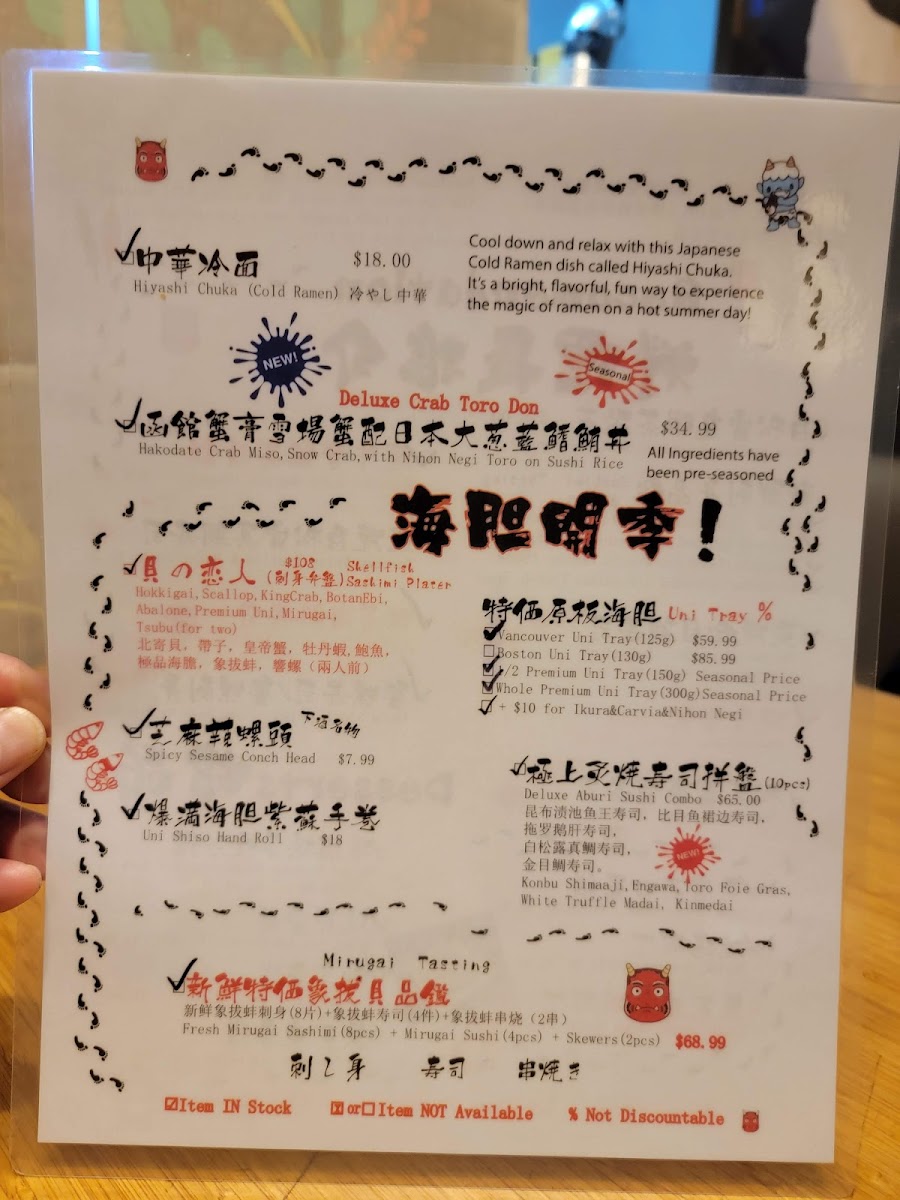 中華冷面 $18.00
Hiyashi Chuka (Cold Ramen) 冷やし中華
Cool down and relax with this Japanese
Cold Ramen dish called Hiyashi Chuka.
It's a bright, flavorful, fun way to experience
the magic of ramen on a hot summer day!
NEW!
Seasonal
Deluxe Crab Toro Don
函館蟹膏雪場蟹配日本大葱藍鰭鮪丼 $34.99
Hakodate Crab Miso,Snow Crab,with Nihon Negi Toro on Sushi Rice
All Ingredients have
been pre-seasoned
海胆開季!
貝の恋人 $108 (刺身弁盤) Skellfish
Sashimi Plater
Hokkigai,Scallop,KingCrab,BotanEbi,
Abalone,Premium Uni,Mirugai,
Tsubu(for two)
北寄貝，帶子，皇帝蟹，牡丹蝦,鮑魚，
極品海膽，象拔蚌，響螺（兩人前）
特価原板海胆 Uni Tray %
Vancouver Uni Tray(125g) $59.99
Boston Uni Tray(130g) $85.99
1/2 Premium Uni Tray(150g) Seasonal Price
Whole Premium Uni Tray(300g)Seasonal Price
+ $10 for Ikura&Carvia&Nihon Negi
芝麻辣螺頭 下酒名物
Spicy Sesame Conch Head $7.99
爆满海胆紫蘇手卷
Uni Shiso Hand Roll $18
極上炙焼寿司拼盤(10pcs)
Deluxe Aburi Sushi Combo $65.00
昆布渍池鱼王寿司，比目鱼裙边寿司，
拖罗鹅肝寿司，
白松露真鲷寿司，
金目鲷寿司。
NEW!
Konbu Shimaaji,Engawa,Toro Foie Gras,
White Truffle Madai, Kinmedai
Mirugai Tasting
新鮮特価象拔貝品鑑
新鲜象拔蚌刺身(8片)+象拔蚌寿司(4件)+象拔蚌串烧（2串）
Fresh Mirugai Sashimi(8pcs) + Mirugai Sushi(4pcs) + Skewers(2pcs) $68.99
刺し身 寿司 串焼き
☑Item IN Stock ☒or☐Item NOT Available % Not Discountable